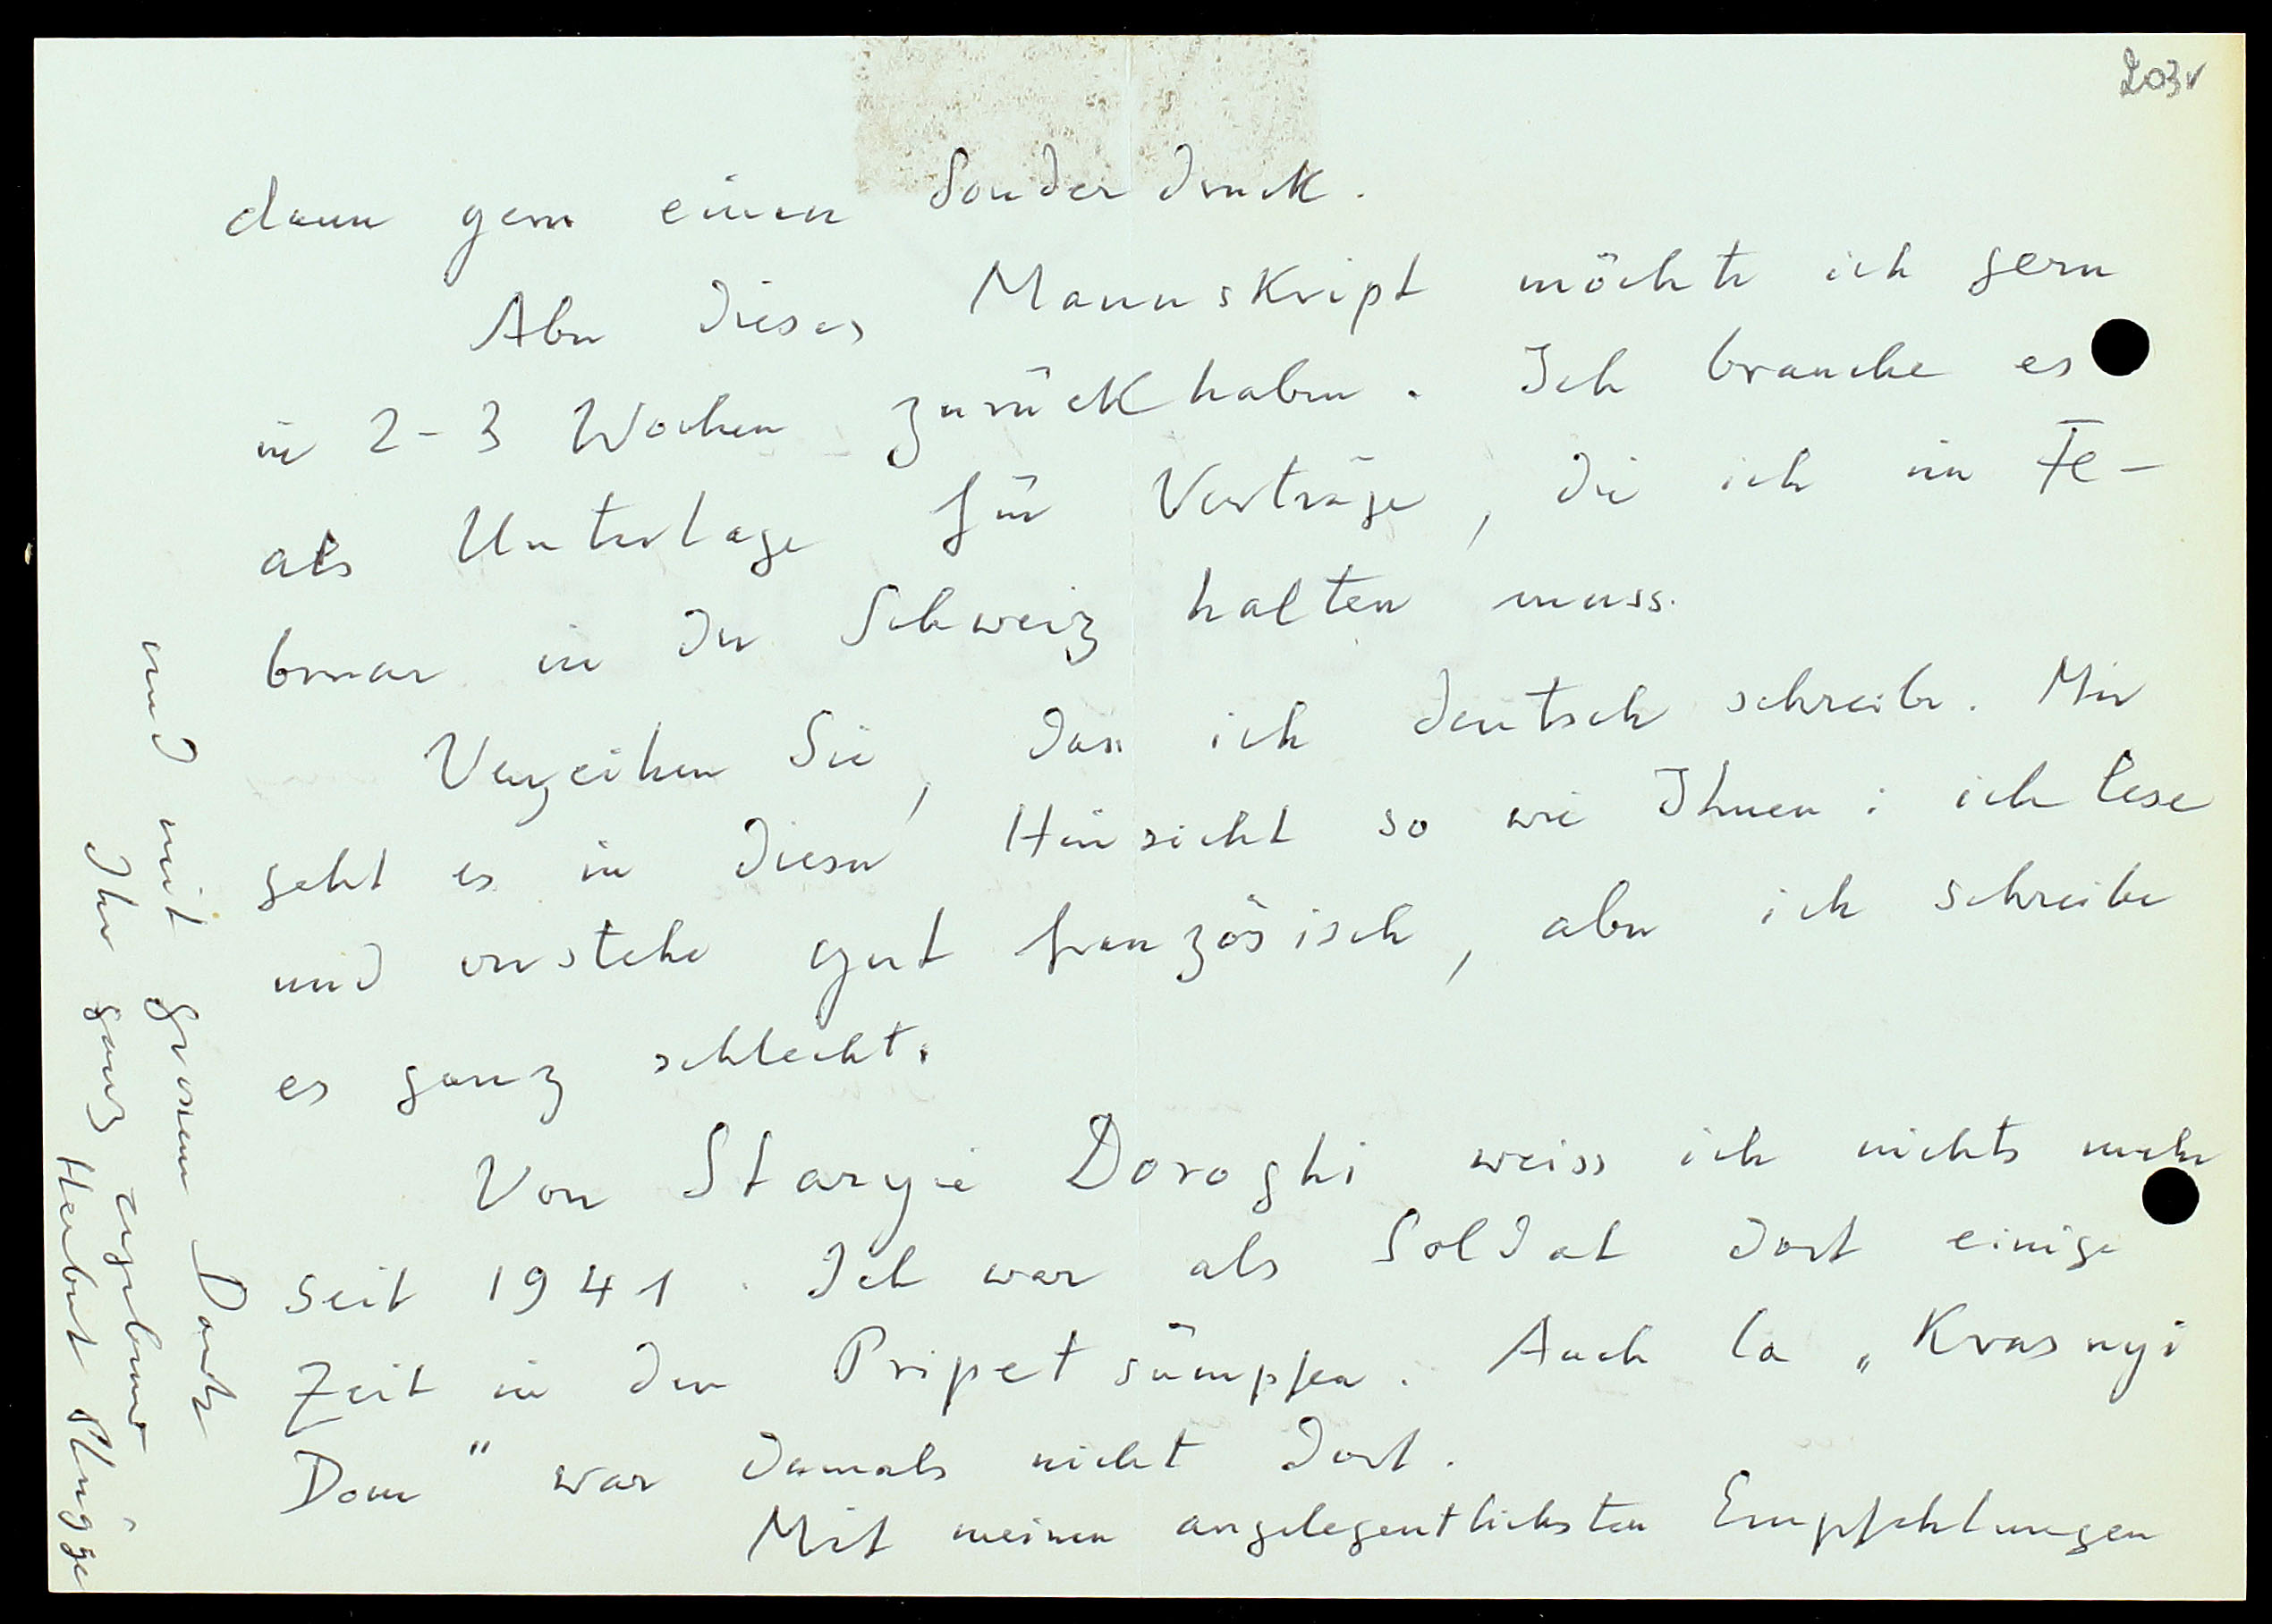 203v
dann gern einen Sonderdruck.
Aber dieses Manuskript möchte ich gern
in 2-3 Wochen zurückhaben. Ich brauche es
als Unterlage für Vorträge, die ich im Fe-
bruar in der Schweiz halten muss.
Verzeihen Sie, dass ich deutsch schreibe. Mir
geht es in dieser Hinsicht so wie Ihnen: ich lese
und verstehe gut französisch, aber ich schreibe
es ganz schlecht.
Von Staryie Doroghi weiss ich nichts mehr
seit 1941. Ich war als Soldat dort einige
Zeit in den Pripetsümpfen. Auch la „Krasnyi
Dom" war damals nicht dort.
Mit meinen angelegentlichsten Empfehlungen
und mit grossem Dank
Ihr ganz ergebener
Herbert Plügge